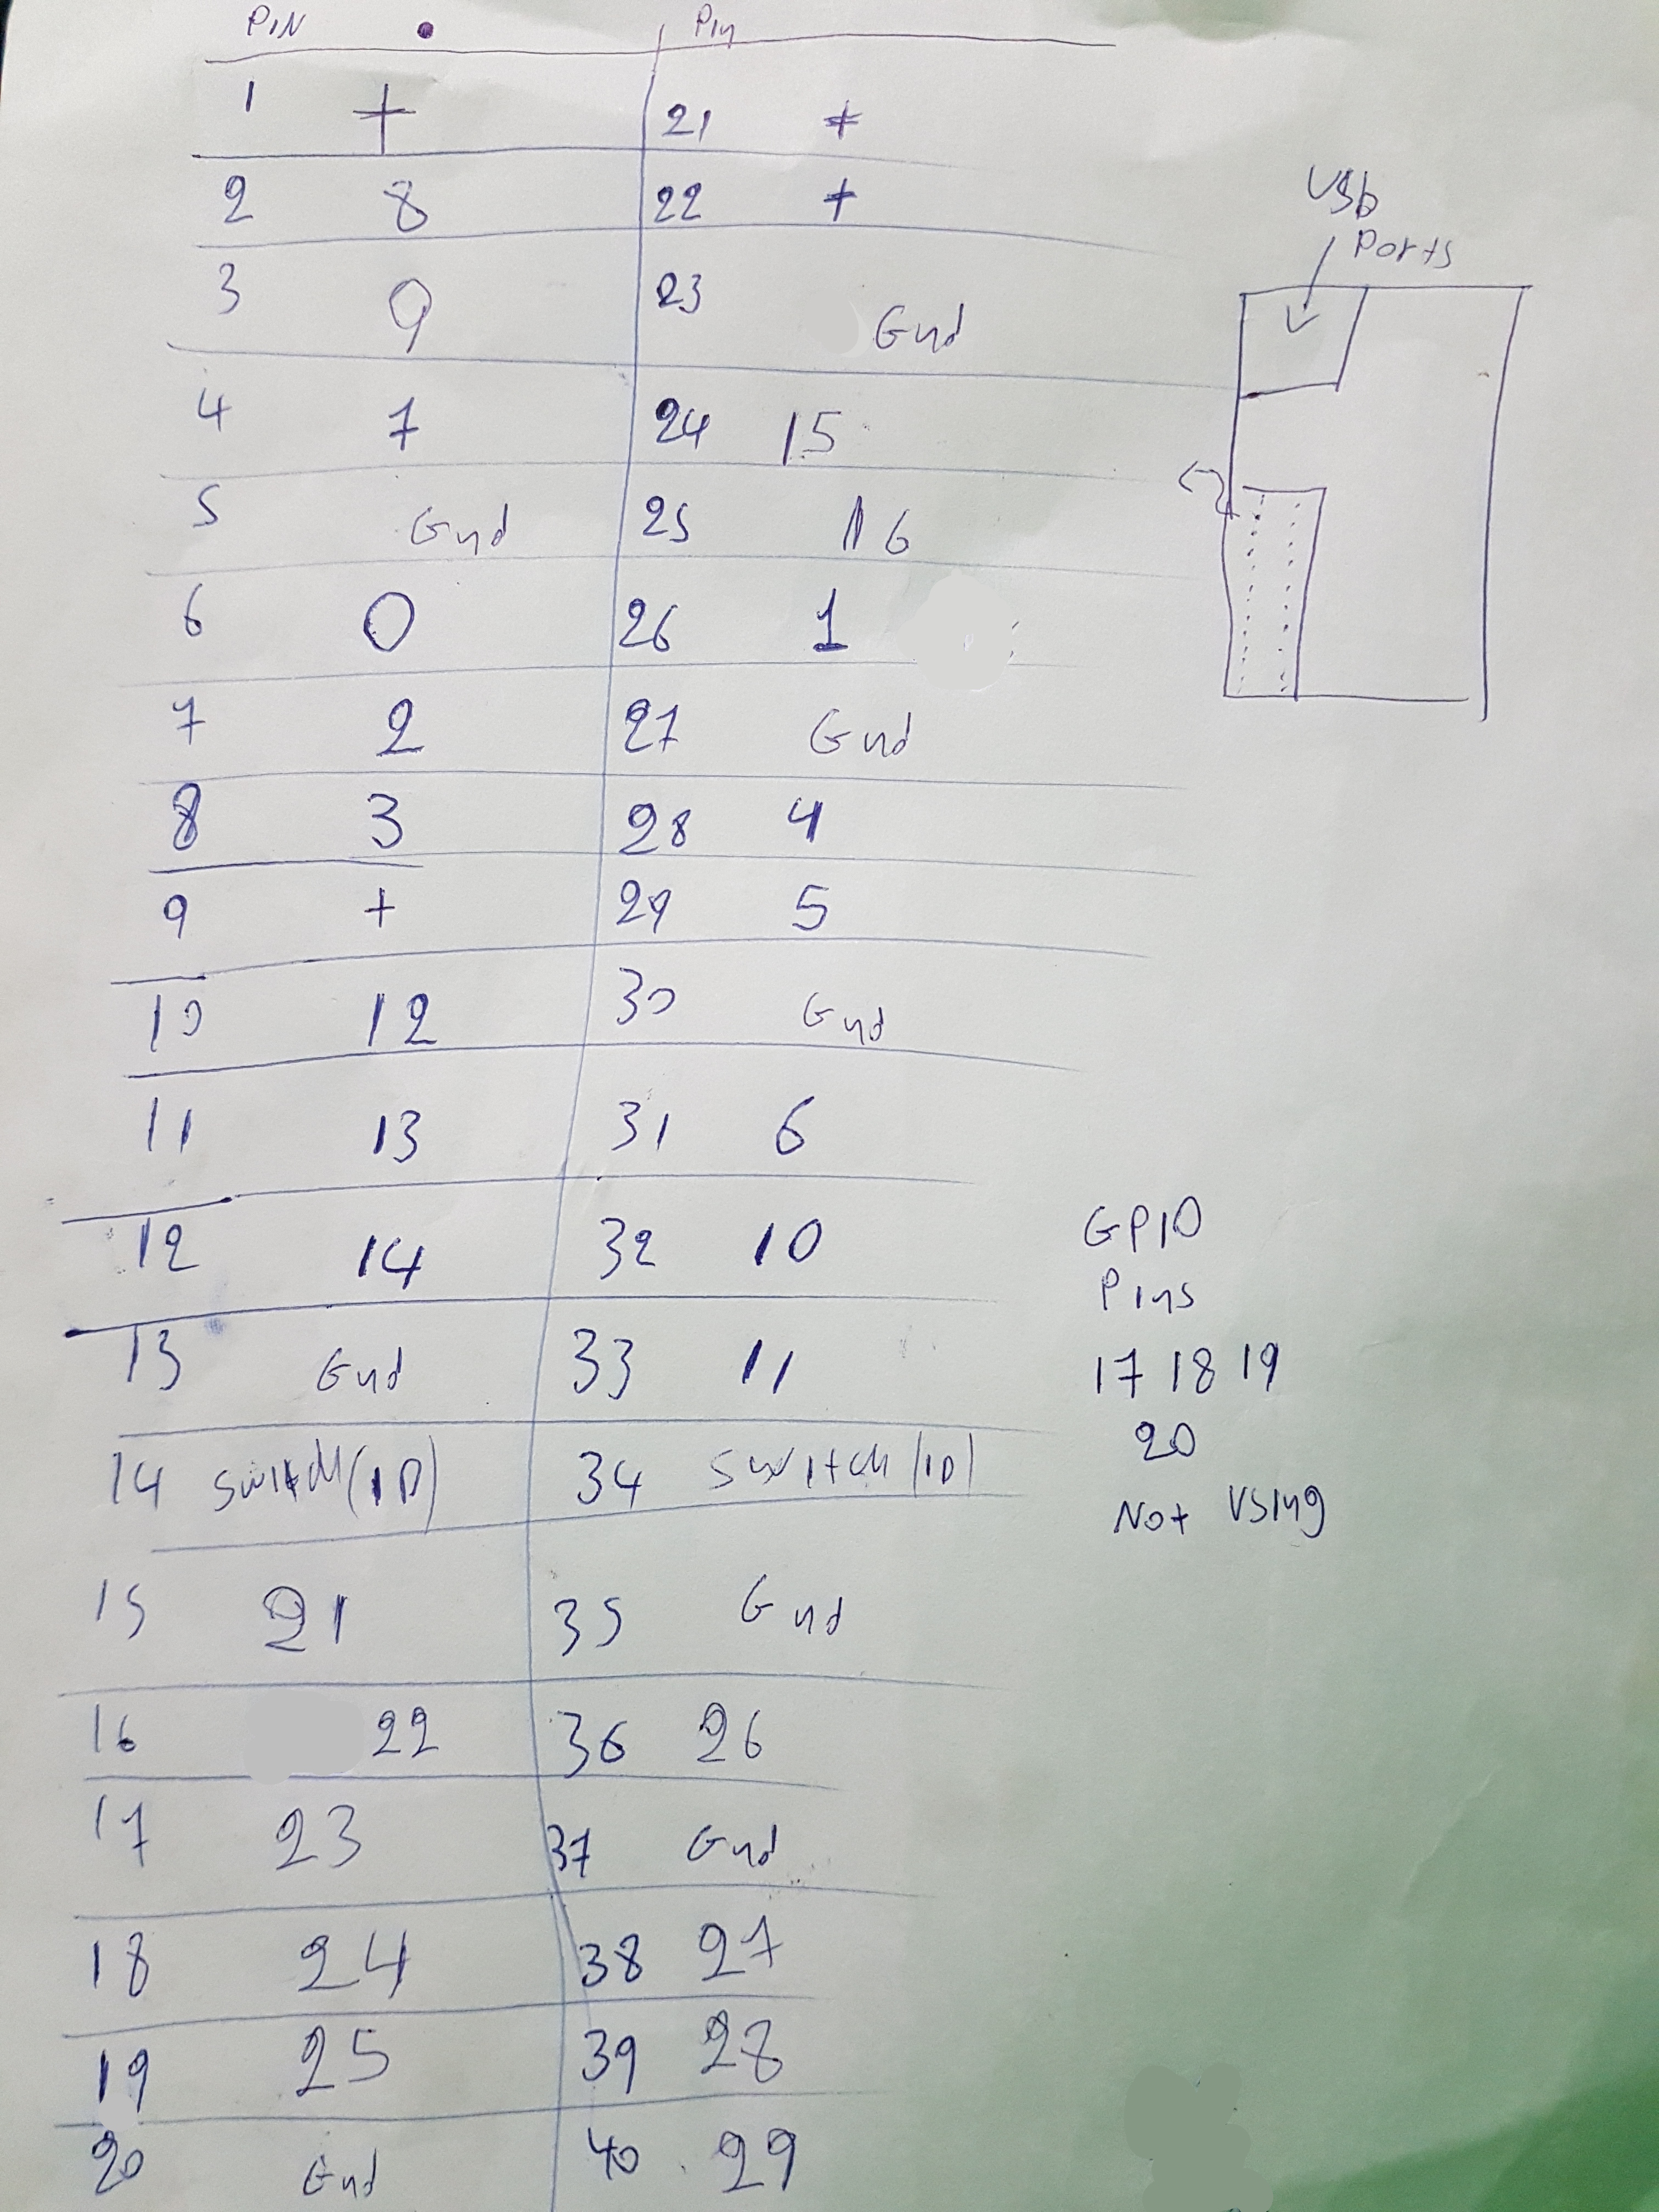 PIN Pin
1 + 21 +
2 8 22 +
3 9 23 Gnd
4 7 24 15
5 Gnd 25 16
6 0 26 1
7 2 27 Gnd
8 3 28 4
9 + 29 5
10 12 30 Gnd
11 13 31 6
12 14 32 10
13 Gnd 33 11
14 Switch (ID) 34 Switch (ID)
15 21 35 Gnd
16 22 36 26
17 23 37 Gnd
18 24 38 27
19 25 39 28
20 Gnd 40 29
USb
Ports
GPIO
Pins
17 18 19
20
Not Using